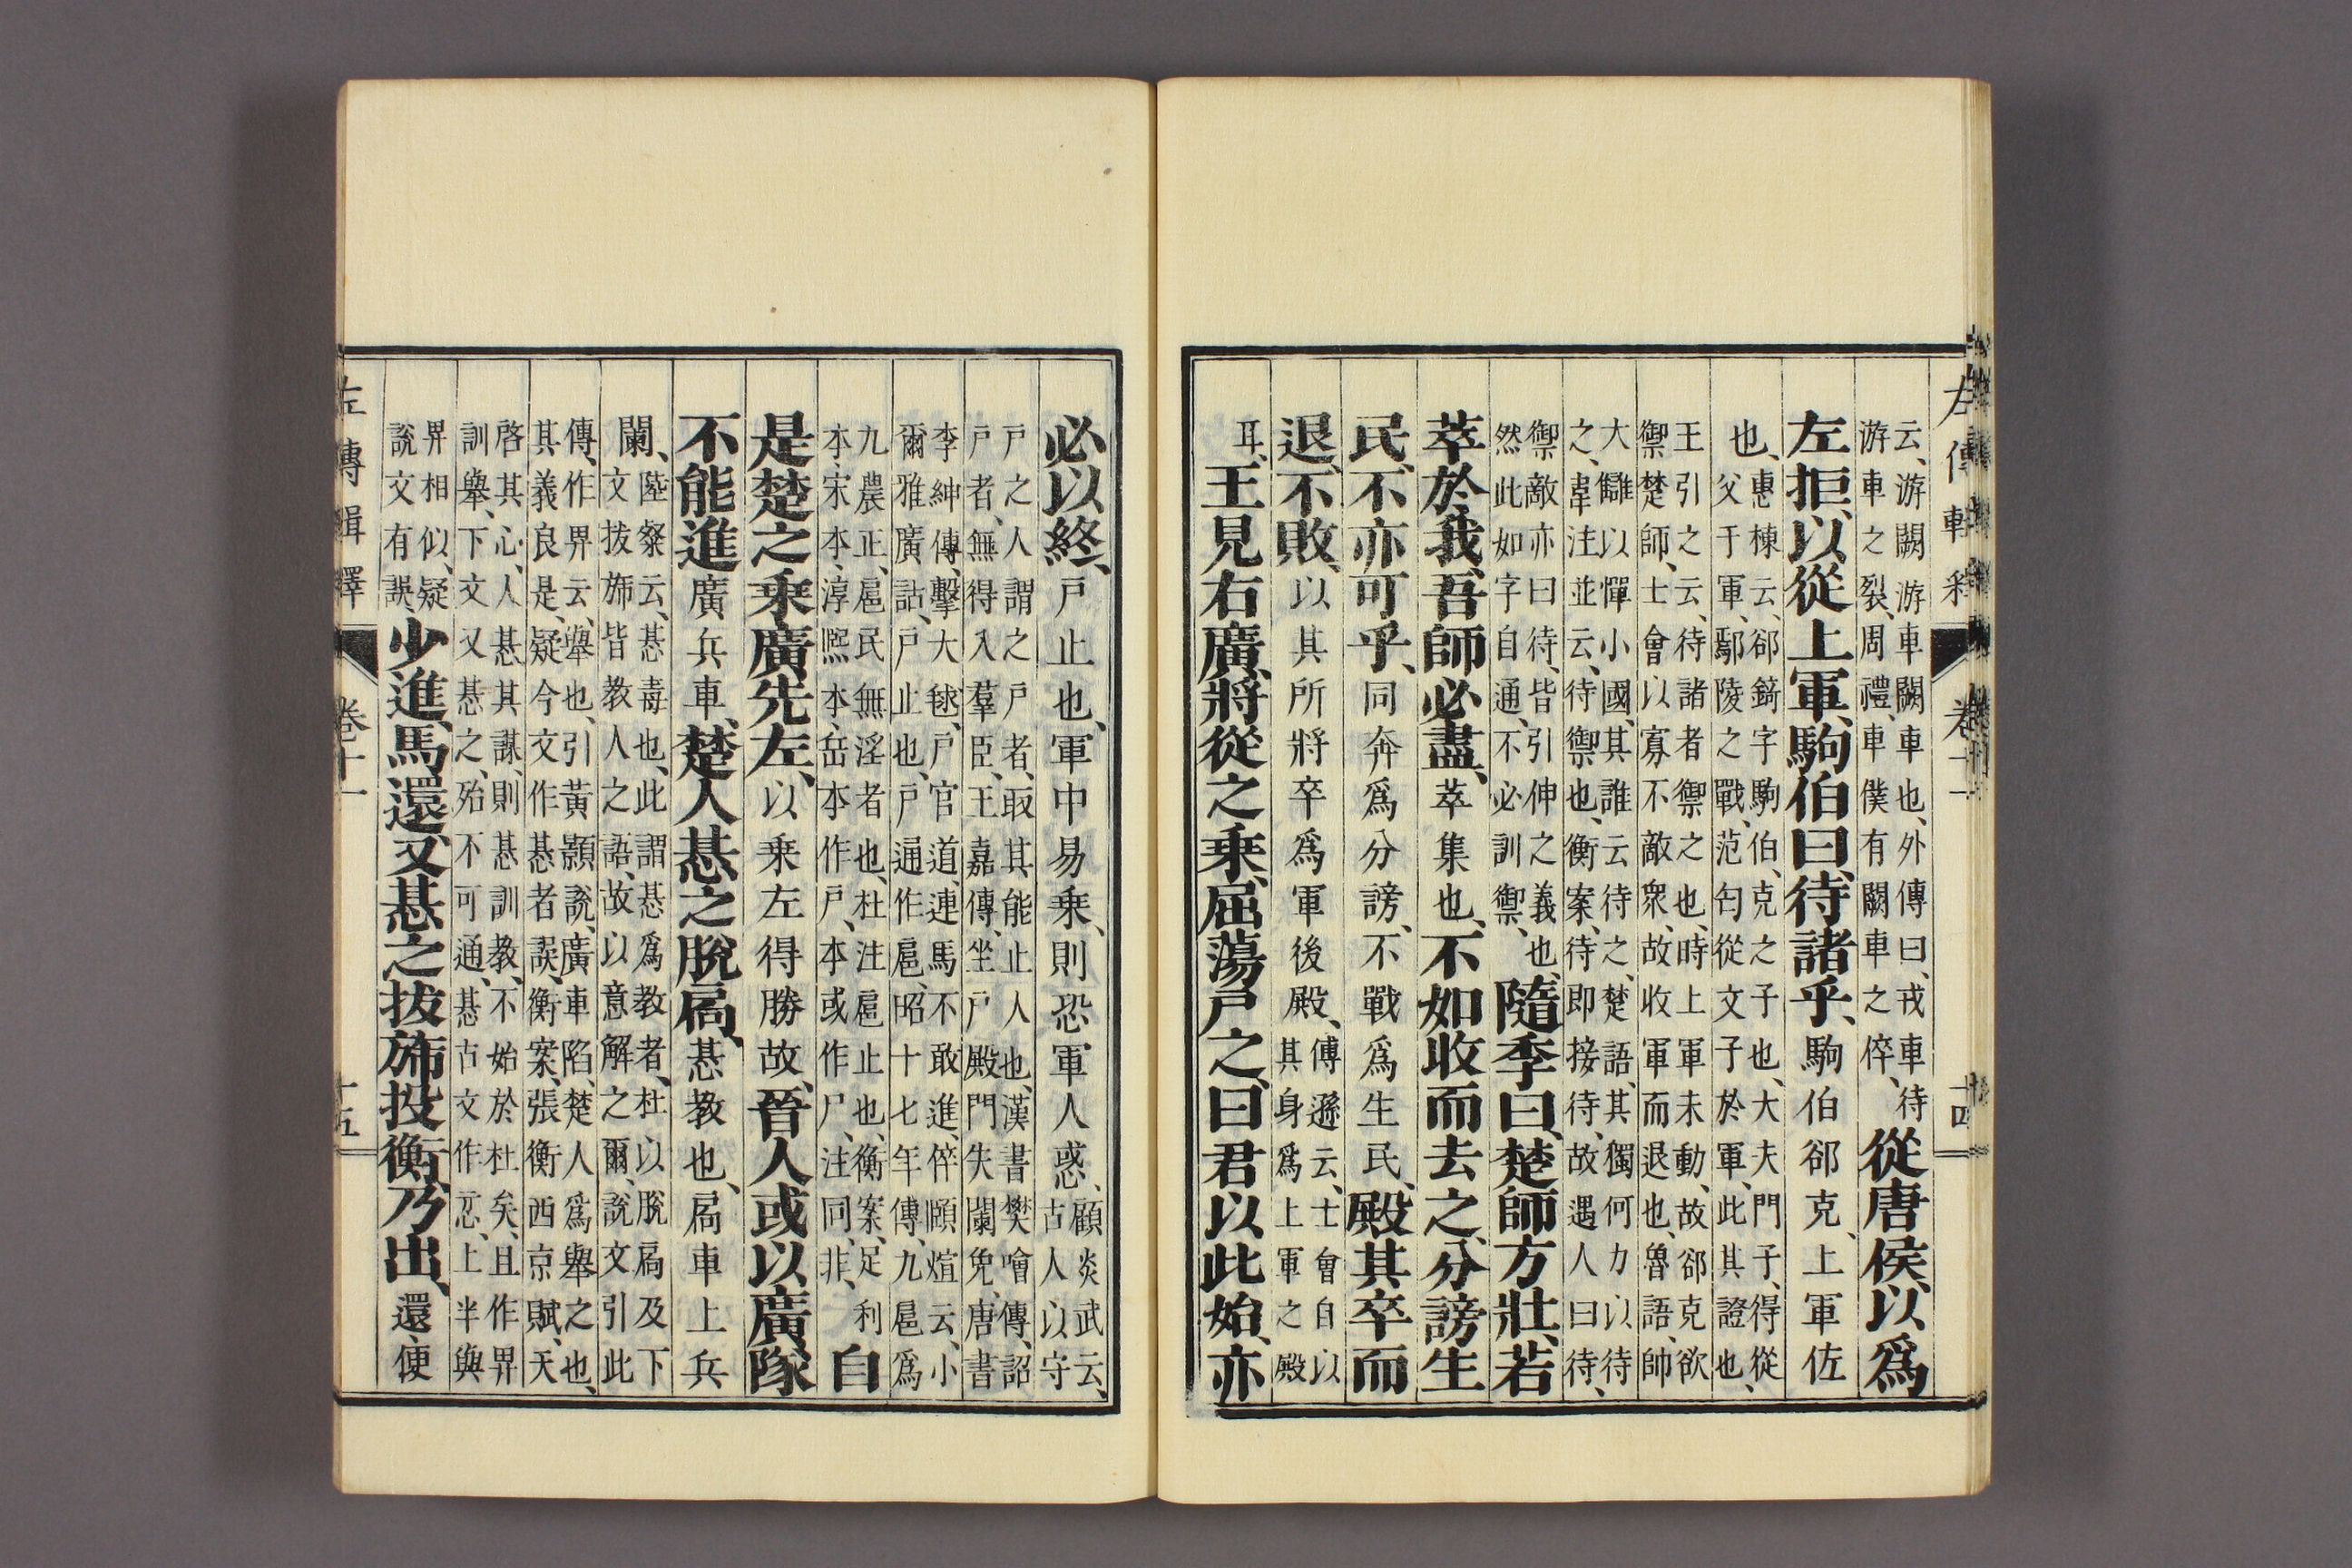 左傳輯釋 卷十一 十四
云、游闕游車闕車也、外傳曰、戎車待
游車之裂、周禮、車僕有闕車之倅、
從唐侯、以爲
左拒、以從上軍、駒伯曰、待諸乎、駒伯郤克、上軍佐
也、
惠棟云、郤錡字駒伯、克之子也、大夫門子、得從
父于軍、鄢陵之戰、范匄從文子於軍、此其證也、
王引之云、待諸者禦之也、時上軍未動、故郤克欲
禦楚師、士會以寡不敵衆、故收軍而退也、魯語、帥
大讎以憚小國、其誰云待之、楚語、其獨何力以待
之、韋注並云、待禦也、衡案、待即接待、故遇人曰待、
禦敵亦曰待、皆引伸之義也、
然此如字自通、不必訓禦、
隨季曰、楚師方壯、若
萃於我、吾師必盡、萃集也、不如收而去之、分謗生
民、不亦可乎、同奔爲分謗、不戰爲生民、殿其卒而
退、不敗、以其所將卒爲軍後殿、
傅遜云、士會自以
其身爲上軍之殿
耳、
王見右廣、將從之乘、屈蕩尸之、曰君以此始、亦
必以終、戶止也、軍中易乘、則恐軍人惑、
顧炎武云、
古人以守
戶之人謂之戶者、取其能止人也、漢書樊噲傳、詔
戶者、無得入羣臣、王嘉傳、坐戶殿門失闌免、唐書
李紳傳、擊大毬、戶官道、連馬不敢進、倅頤煊云、小
爾雅廣詁、戶止也、戶通作扈、昭十七年傳、九扈爲
九農正、扈民無淫者也、杜注扈止也、衡案、足利
本、宋本、淳熙本、岳本作戶、本或作尸、注同、非、
自
是楚之乘廣先左、以乘左得勝故、晉人或以廣隊
不能進廣兵車、楚人惎之脫扃、惎教也、扃車上兵
闌、
陸粲云、惎毒也、此謂惎爲教者、杜以脫扃及下
文拔斾皆教人之語、故以意解之爾、說文引此
傳、作畀云、舉也、引黃顥說、廣車陷、楚人爲舉之也、
其義良是、疑今文作惎者誤、衡案、張衡西京賦、天
啓其心、人惎其謀、則惎訓教、不始於杜矣、且作畀
訓舉、下文又惎之、殆不可通、惎古文作𢗊、上半與
畀相似、疑
說文有誤、
少進、馬還、又惎之拔斾投衡、乃出、還、便
左傳輯釋 卷十一 十五